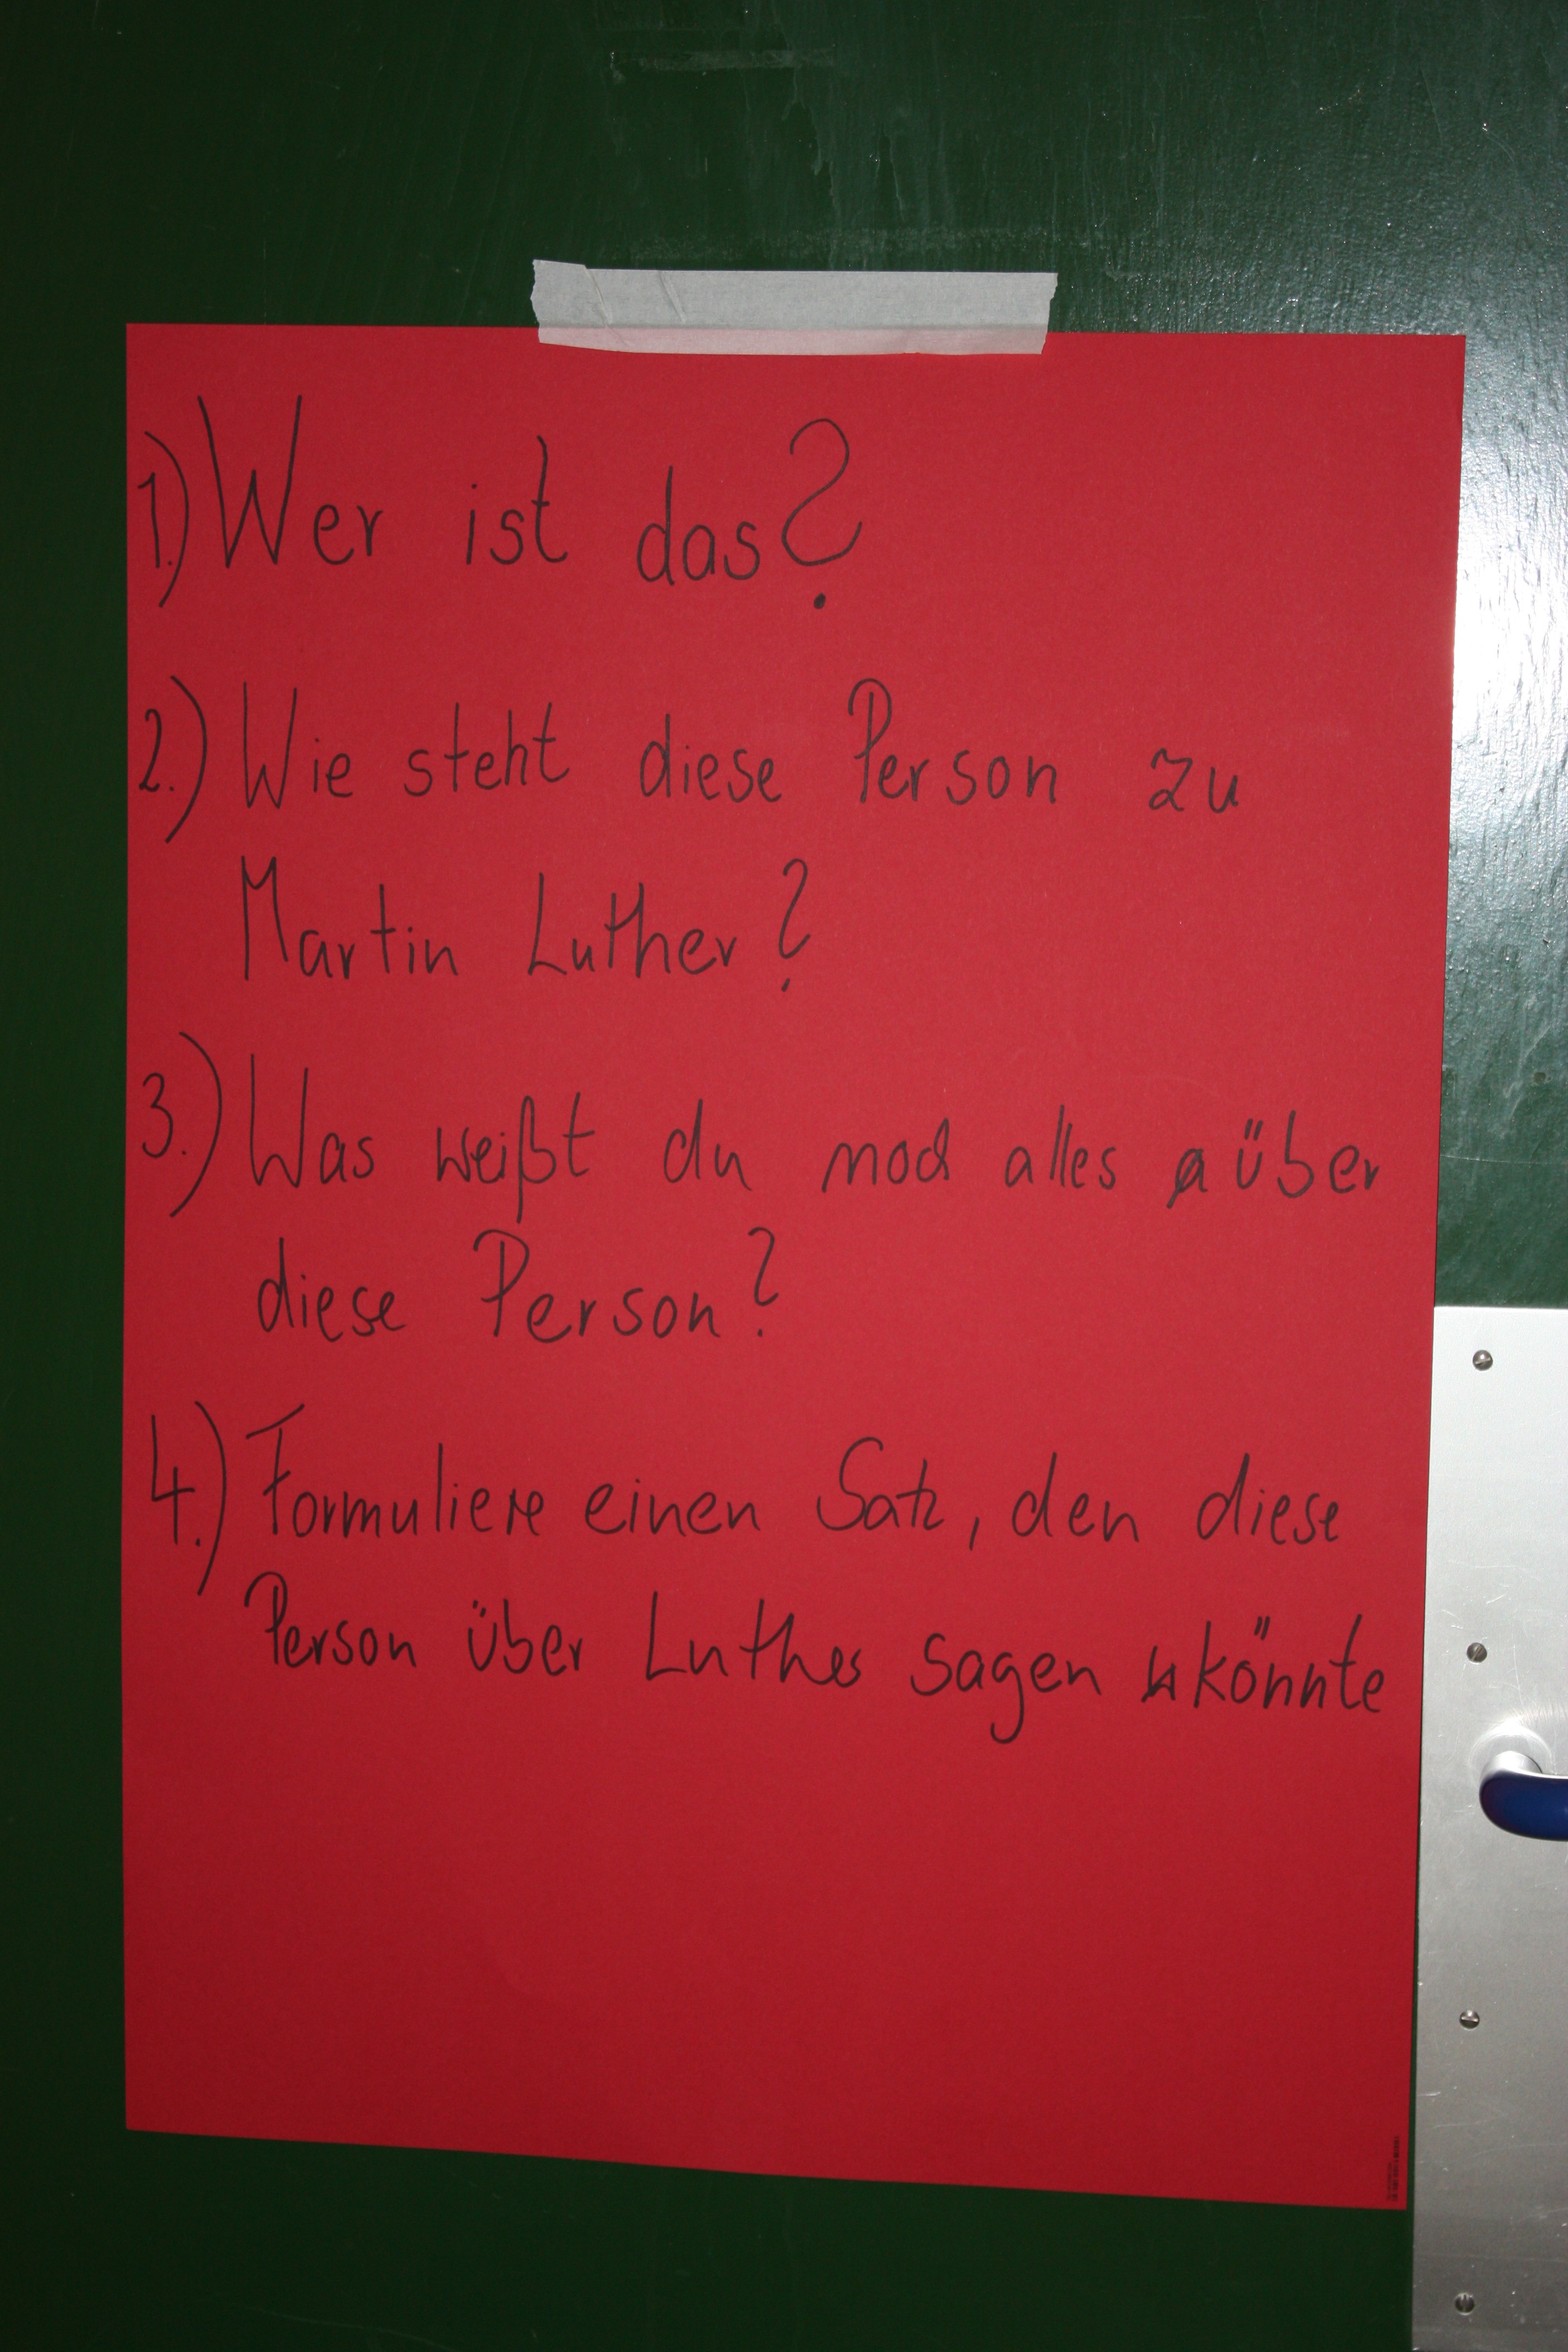 1.) Wer ist das?
2.) Wie steht diese Person zu
Martin Luther?
3.) Was weißt du noch alles über
diese Person?
4.) Formuliere einen Satz, den diese
Person über Luther sagen könnte